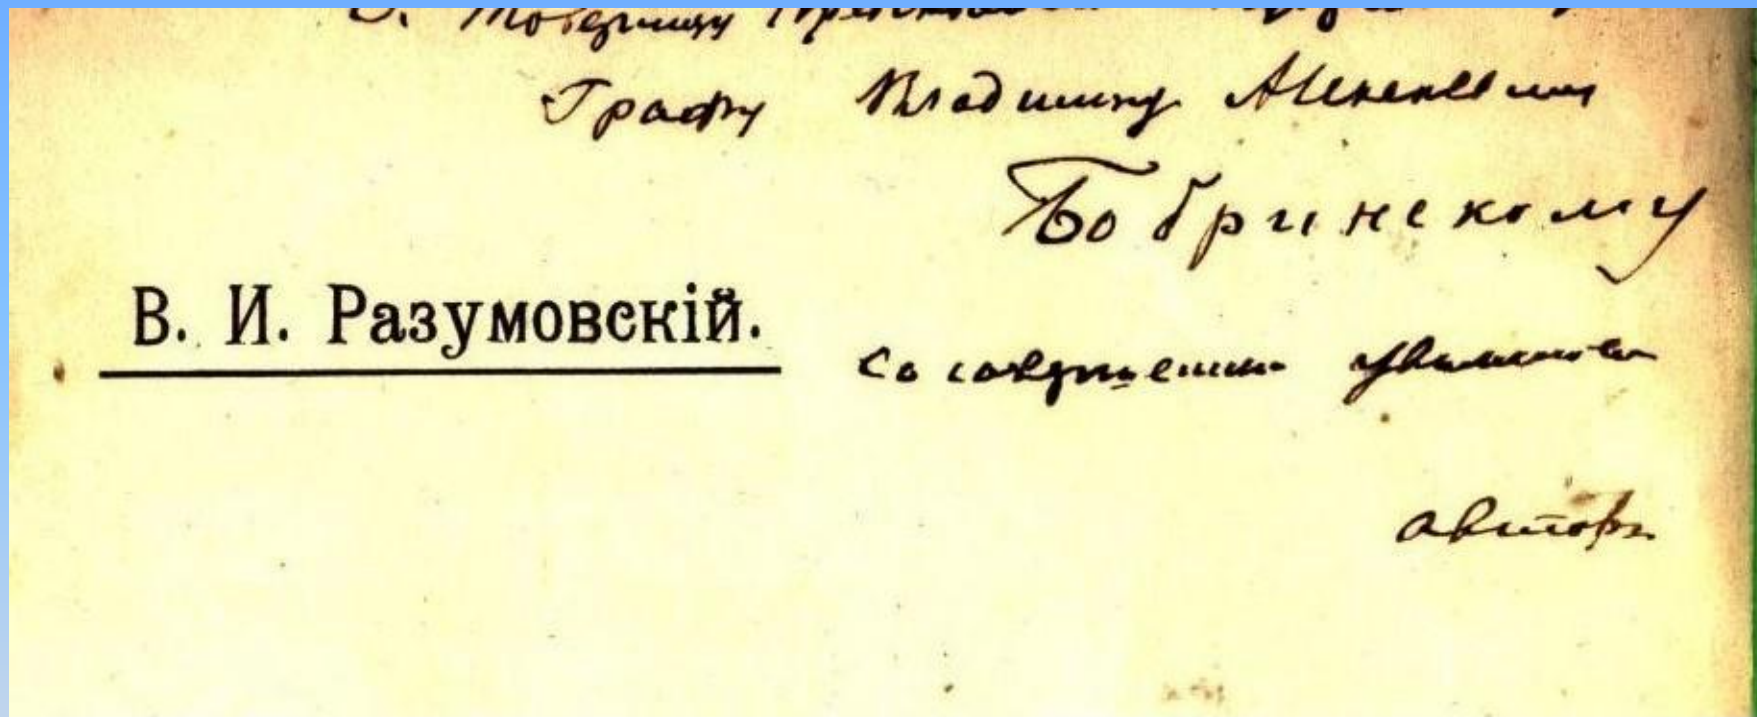 Товарищу
Графу Владимиру Алексѣевичу
Бобринскому
В. И. Разумовскій.
Со совершеннымъ уваженіемъ
авторъ